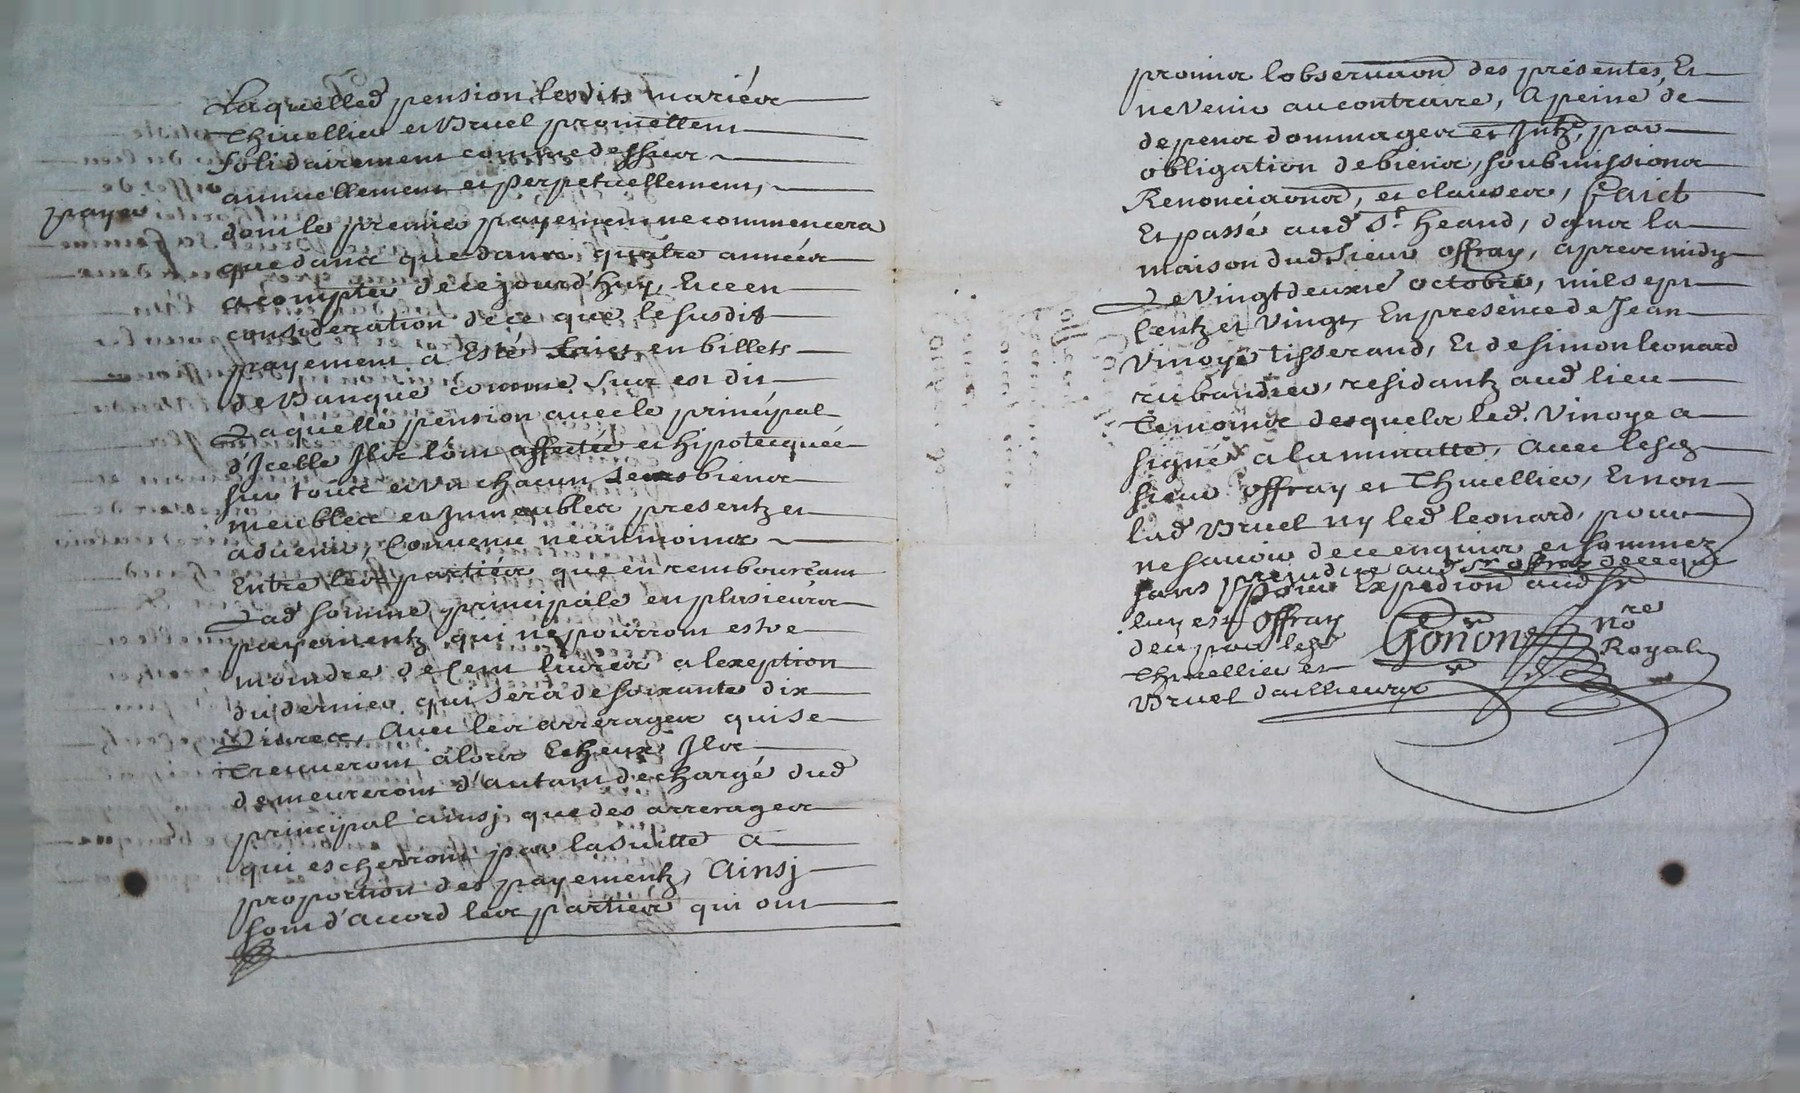 Laquelled pension lesdits mariés
Thivellier et Bruel promettent
solidairement comme dessus
annuellement et perpetuellement,
payer
dont le premier payement ne commencera
que dans que dans quatre années
a compter de ce jourd'huy, Et ce en
consideration de ce que le susdit
payement a Esté faict en billets
de Banque comme sus est dit
Laquelle pension avec le principal
d'Icelle Ils l'ont affectée et hipotecquée
sur tous et Un chacun leurs biens
meubles et Immeubles presentz et
advenir, Convenu néanmoins
Entre les parties que en remboursant
Lad somme principale en plusieurs
payementz qui ne pourront estre
moindre de Cent livres a lexeption
du dernier qui sera de soixante dix
Livres, Avec les arrerages qui se
treuveront alors Echeux Ils
demeureront d'autant dechargé dud
principal ainsj que des arrerages
qui escherront par la suitte a
proportion des payementz, Ainsj
sont d'accord les parties qui ont
promis lobservaon des présentes, Et
ne Venir au contraire, A peine de
depens dommages et Intz, par
obligation de biens, soubmissions
Renonciaons, et clauses, faict
Et passé aud St heand, dans la
maison dud sieur offray, apres midy
Le Vingt deuxié octobre, mil sept
Centz et Vingt, En presence de Jean
Vinoye tisserand, Et de simon leonard
rubandier, residantz aud lieu
Temoins desquels led. Vinoye a
signé a la minutte, avec lesd
sieur offray et Thivellier, Et non
lad Bruel ny led leonard, pour
ne savoir de ce enquis et sommez
sans prejudice aud sr offray de ce qui
pour Expedion aud sr
luy est offray
deu par lesd
Thivellier et
Bruel d'ailleurs
Gonon
nore
Royal